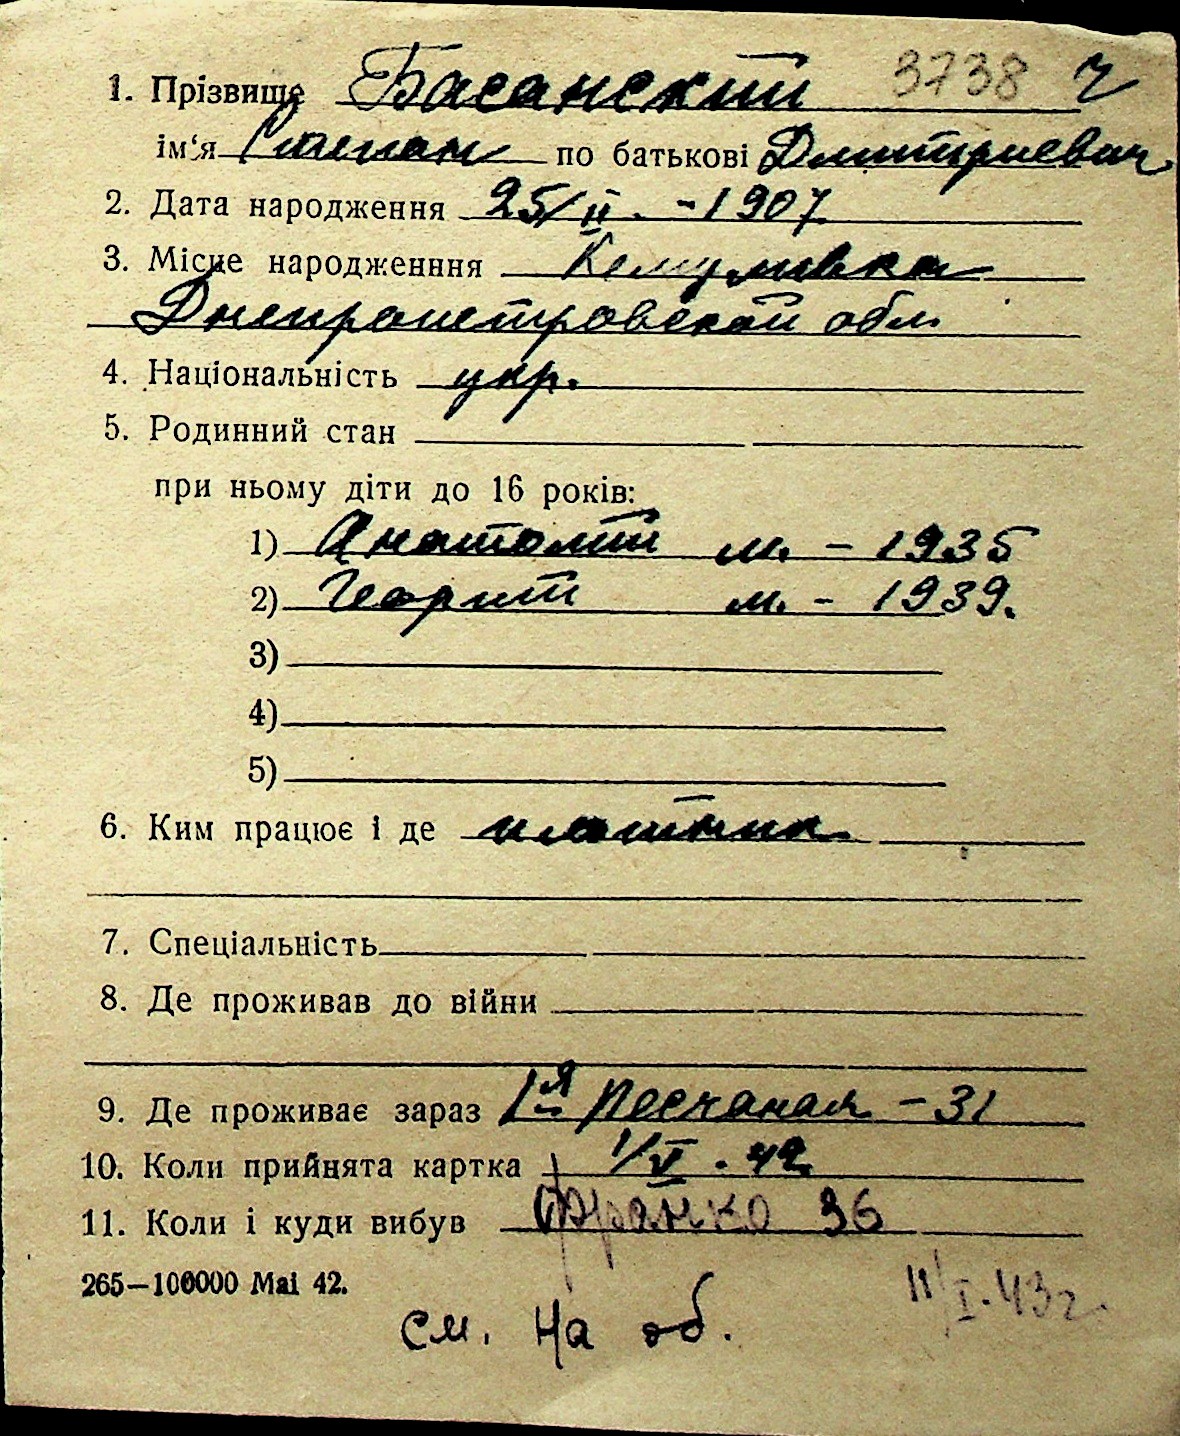 1. Прізвище Басанский 3738 ч
ім‘я Степан по батькові Дмитриевич
2. Дата народження 25/II. -1907
3. Місце народженння
Днепропетровской обл.
4. Національність укр.
5. Родинний стан
при ньому діти до 16 років:
1) Анатолий м. - 1935
2) Георгий м. - 1939.
3)
4)
5)
6. Ким працює і де плотник
7. Спеціальність
8. Де проживав до війни
9. Де проживає зараз 1-я Песчаная - 31
10. Коли прийнята картка 1/V. 42
11. Коли і куди вибув Франко 36
265—100000 Mai 42. 11/I. 43 г.
см. на об.